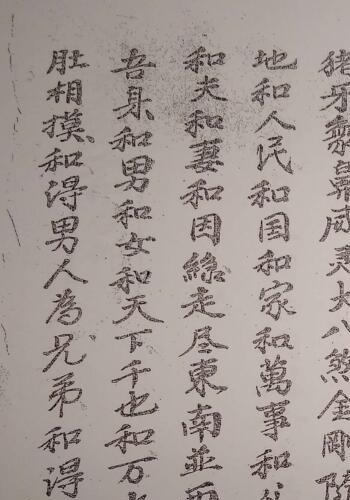 猪牙眾鼻成妻大八煞金剛
地和人民和国和家和萬事和
和夫和妻和因緣走尽東南並西
吾身和男和女和天下千也和万
肚相摸和得男人為兄弟和得